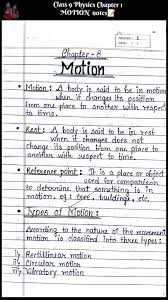 Class 9 Physics Chapter 1
MOTION notes📝
Chapter - 8
Motion
• Motion : A body is said to be in motion
when if changes its position
from one place to another with respect
to time.
• Rest : A body is said to be in rest
when if changes does not
change its position from one place to
another with respect to time.
• Reference point : It is a place or object
used for comparison
to determine that something is in
motion. eg : tree, buildings, etc.
• Types of Motion :
According to the nature of the movement
motion is classified into three types :
i) Rectilinear motion
ii) Circular motion
iii) Vibratory motion